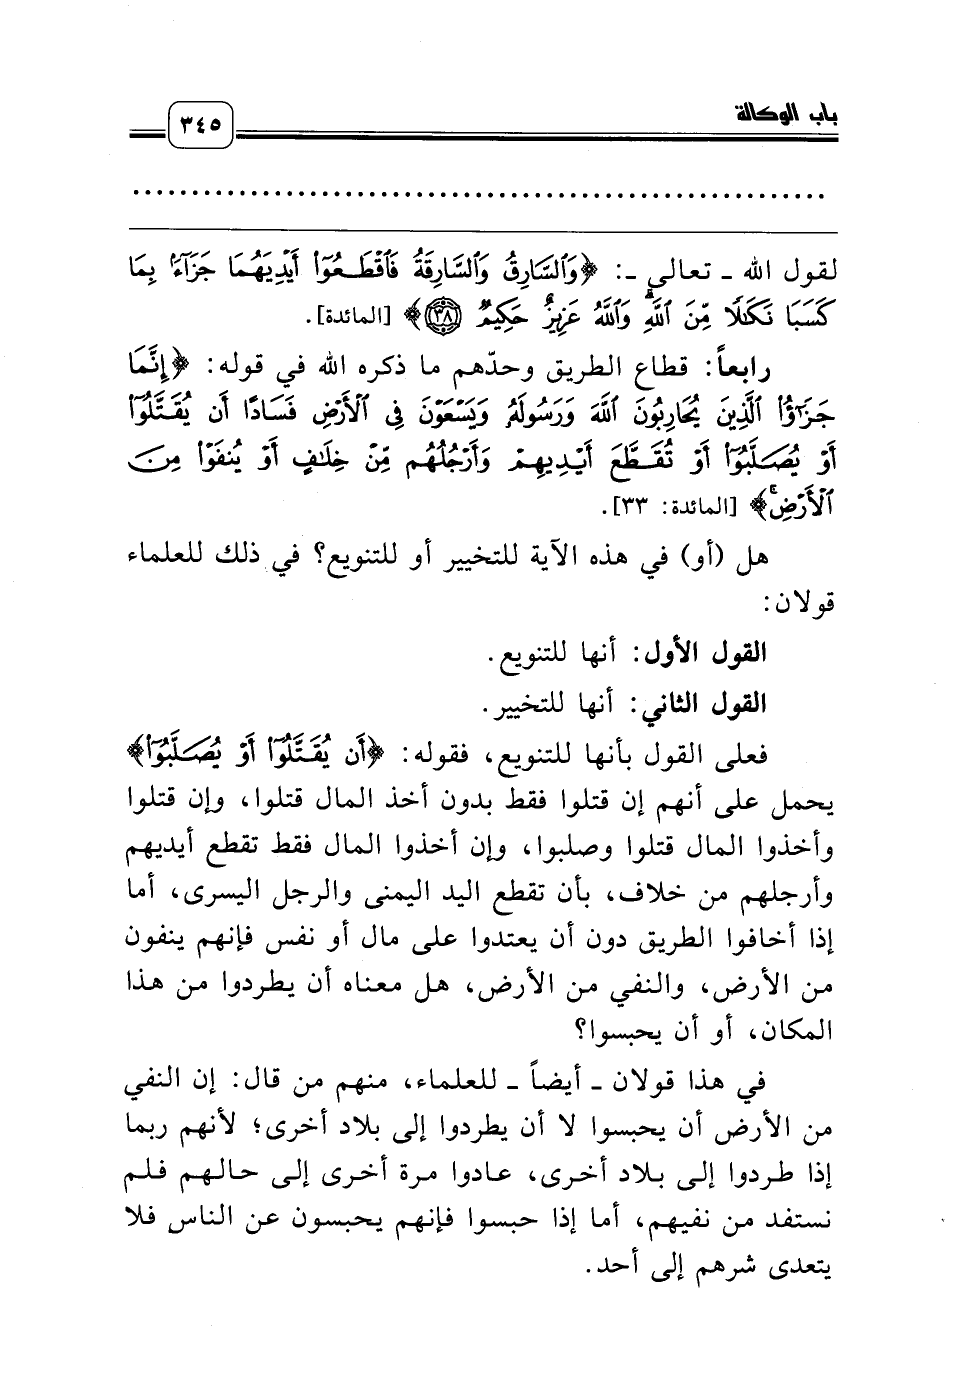 باب الوكالة
٣٤٥
لقول الله ـ تعالى ـ: ﴿وَٱلسَّارِقُ وَٱلسَّارِقَةُ فَٱقْطَعُوٓا۟ أَيْدِيَهُمَا جَزَآءًۢ بِمَا
كَسَبَا نَكَـٰلًا مِّنَ ٱللَّهِۗ وَٱللَّهُ عَزِيزٌ حَكِيمٌ ۝٣٨﴾ [المائدة].
رابعاً: قطاع الطريق وحدّهم ما ذكره الله في قوله: ﴿إِنَّمَا
جَزَٰٓؤُا۟ ٱلَّذِينَ يُحَارِبُونَ ٱللَّهَ وَرَسُولَهُۥ وَيَسْعَوْنَ فِى ٱلْأَرْضِ فَسَادًا أَن يُقَتَّلُوٓا۟
أَوْ يُصَلَّبُوٓا۟ أَوْ تُقَطَّعَ أَيْدِيهِمْ وَأَرْجُلُهُم مِّنْ خِلَـٰفٍ أَوْ يُنفَوْا۟ مِنَ
ٱلْأَرْضِۚ﴾ [المائدة: ٣٣].
هل (أو) في هذه الآية للتخيير أو للتنويع؟ في ذلك للعلماء
قولان:
القول الأول: أنها للتنويع.
القول الثاني: أنها للتخيير.
فعلى القول بأنها للتنويع، فقوله: ﴿أَن يُقَتَّلُوٓا۟ أَوْ يُصَلَّبُوٓا۟﴾
يحمل على أنهم إن قتلوا فقط بدون أخذ المال قتلوا، وإن قتلوا
وأخذوا المال قتلوا وصلبوا، وإن أخذوا المال فقط تقطع أيديهم
وأرجلهم من خلاف، بأن تقطع اليد اليمنى والرجل اليسرى، أما
إذا أخافوا الطريق دون أن يعتدوا على مال أو نفس فإنهم ينفون
من الأرض، والنفي من الأرض، هل معناه أن يطردوا من هذا
المكان، أو أن يحبسوا؟
في هذا قولان ـ أيضاً ـ للعلماء، منهم من قال: إن النفي
من الأرض أن يحبسوا لا أن يطردوا إلى بلاد أخرى؛ لأنهم ربما
إذا طردوا إلى بلاد أخرى، عادوا مرة أخرى إلى حالهم فلم
نستفد من نفيهم، أما إذا حبسوا فإنهم يحبسون عن الناس فلا
يتعدى شرهم إلى أحد.